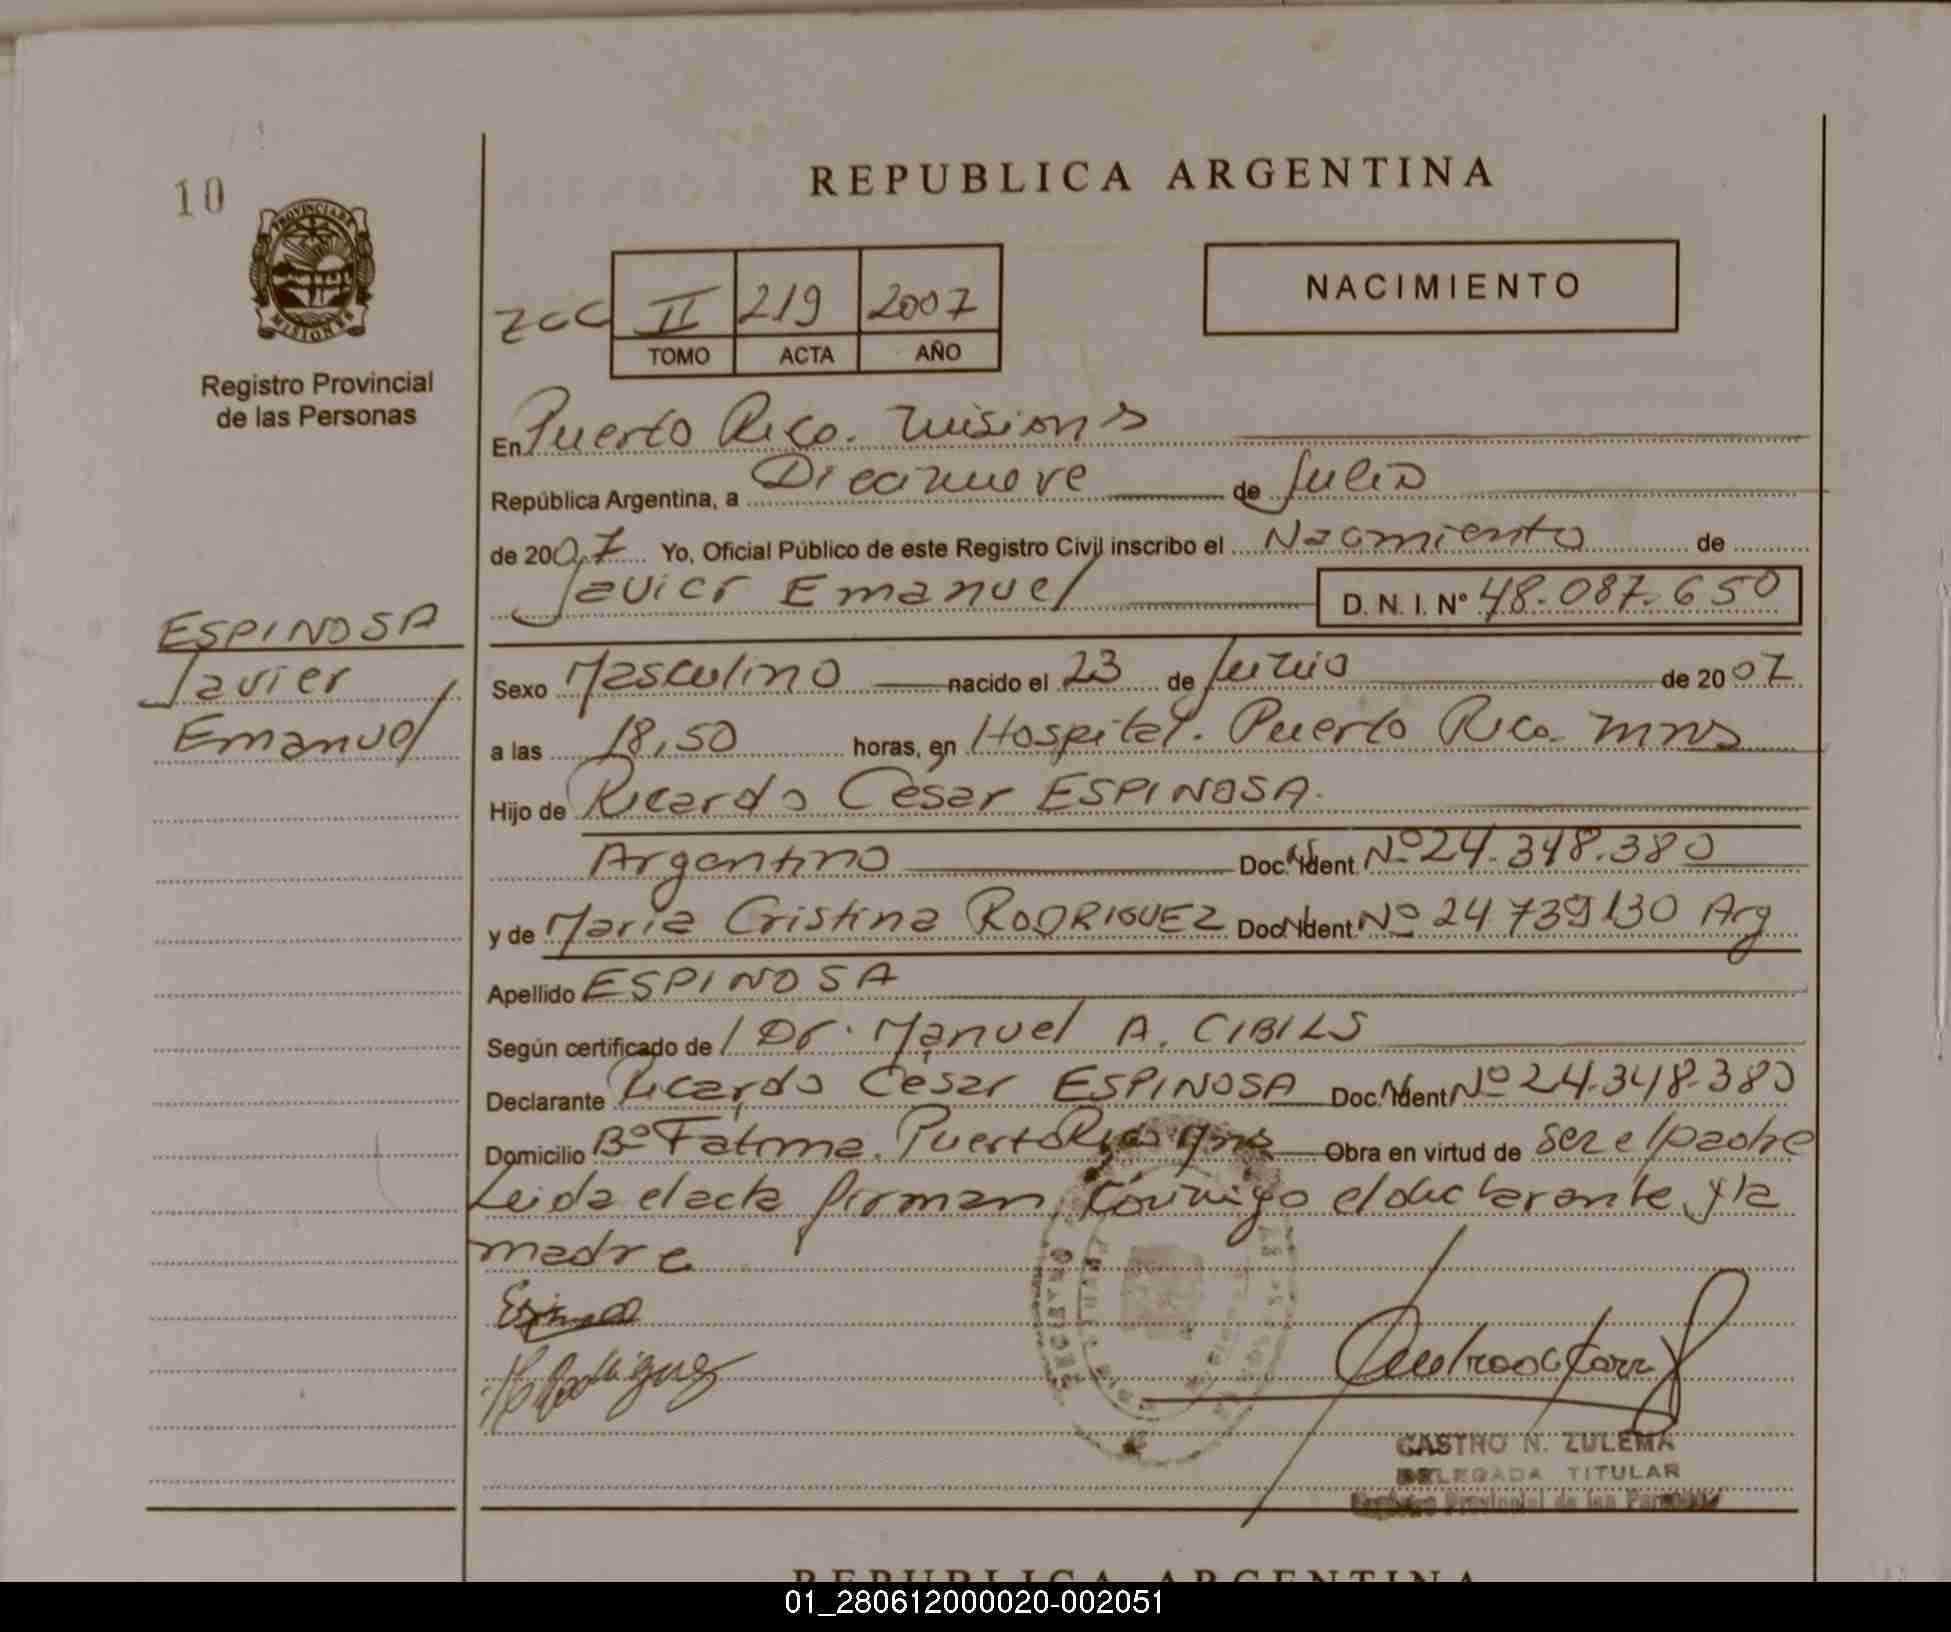 REPUBLICA ARGENTINA
10
PROVINCIA DE MISIONES
Registro Provincial
de las Personas
NACIMIENTO
II 219 2007
TOMO ACTA AÑO
En Puerto Rico. Misions
República Argentina, a Diecinueve de Julio
de 2007 Yo, Oficial Público de este Registro Civil inscribo el Nacimiento de
Javier Emanuel D. N. I. Nº 48.087.650
ESPINOSA
Javier
Emanuel
Sexo Masculino nacido el 23 de Junio de 2007
a las 18,50 horas, en Hospital. Puerto Rico. Mns
Hijo de Ricardo César ESPINOSA.
Argentino Doc. Ident. Nº 24.348.380
y de María Cristina RODRIGUEZ Doc. Ident. Nº 24739130 Arg
Apellido ESPINOSA
Según certificado de Dr. Manuel A. CIBILS
Declarante Ricardo César ESPINOSA Doc. Ident. Nº 24.348.380
Domicilio Bº Fátima. Puerto Rico Mns Obra en virtud de ser el padre
Leida el acta firman conmigo el declarante y la
madre
CASTRO N. ZULEMA
DELEGADA TITULAR
Registro Provincial de las Personas
REPUBLICA ARGENTINA
01_280612000020-002051